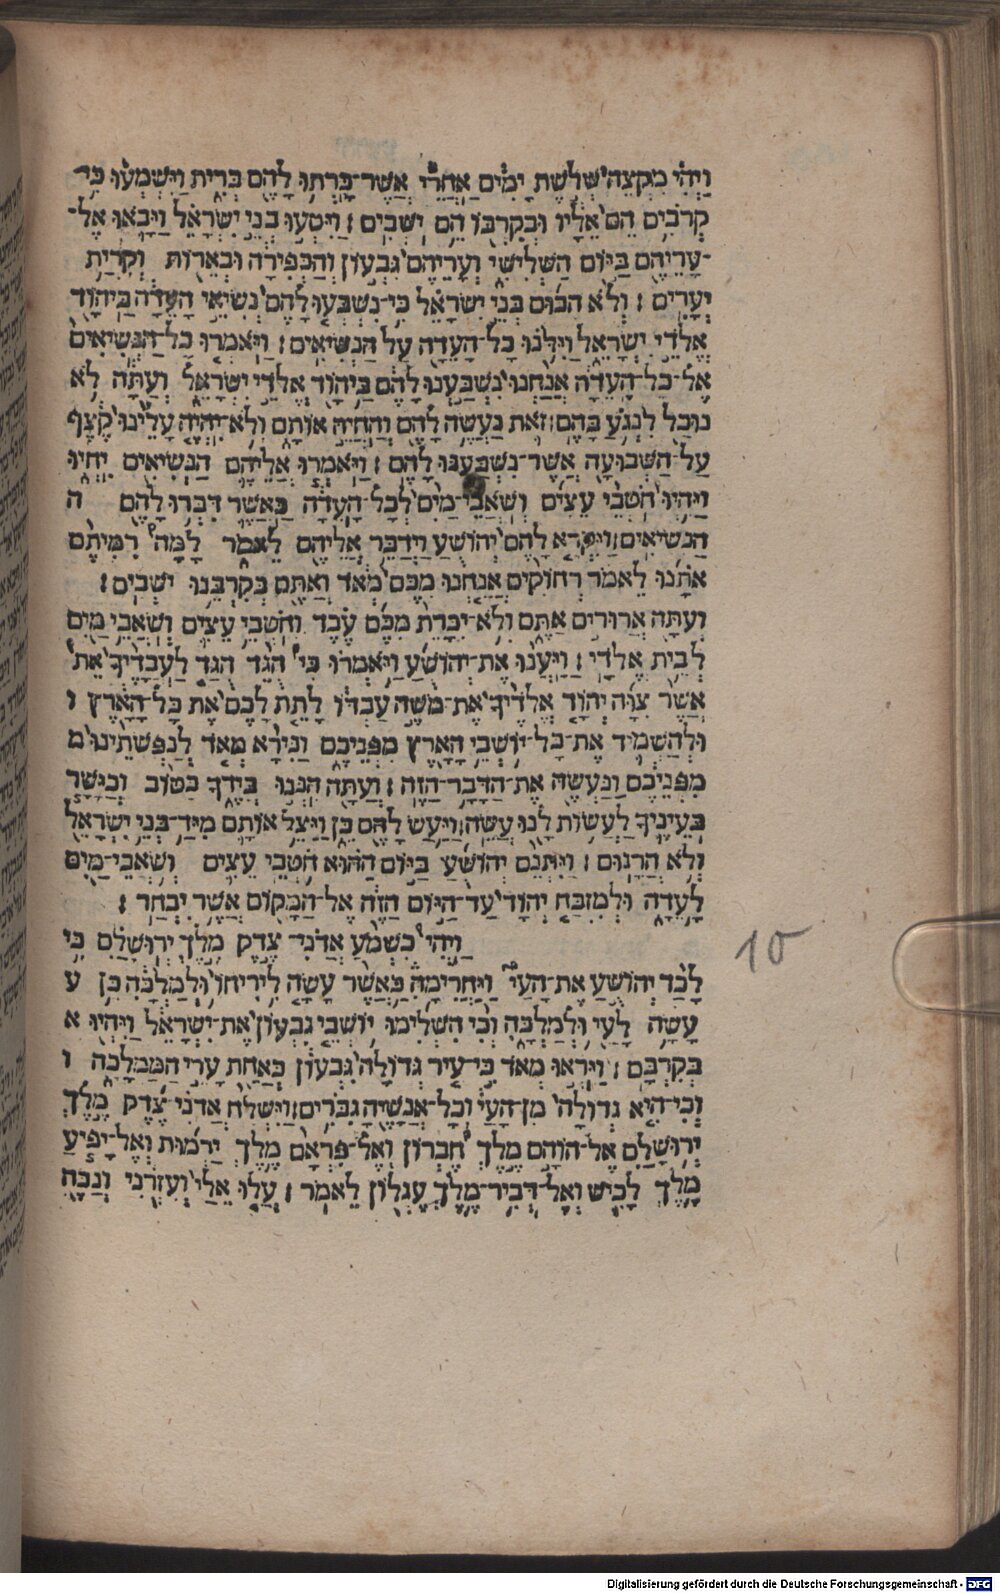 וַיְהִי מִקְצֵה שְׁלֹשֶׁת יָמִים אַחֲרֵי אֲשֶׁר־כָּרְתוּ לָהֶם בְּרִית וַיִּשְׁמְעוּ כִּי־
קְרֹבִים הֵם אֵלָיו וּבְקִרְבּוֹ הֵם יֹשְׁבִים : וַיִּסְעוּ בְנֵי יִשְׂרָאֵל וַיָּבֹאוּ אֶל־
־עָרֵיהֶם בַּיּוֹם הַשְּׁלִישִׁי וְעָרֵיהֶם גִּבְעוֹן וְהַכְּפִירָה וּבְאֵרוֹת וְקִרְיַת
יְעָרִים : וְלֹא הִכּוּם בְּנֵי יִשְׂרָאֵל כִּי־נִשְׁבְּעוּ לָהֶם נְשִׂיאֵי הָעֵדָה בַּיהוָֹד
אֱלֹדֵי יִשְׂרָאֵל וַיִּלֹּנוּ כָל־הָעֵדָה עַל הַנְּשִׂיאִים : וַיֹּאמְרוּ כָל־הַנְּשִׂיאִים
אֶל־כָּל־הָעֵדָה אֲנַחְנוּ נִשְׁבַּעְנוּ לָהֶם בַּיהוָֹד אֱלֹדֵי יִשְׂרָאֵל וְעַתָּה לֹא
נוּכַל לִנְגֹּעַ בָּהֶם : זֹאת נַעֲשֶׂה לָהֶם וְהַחֲיֵה אוֹתָם וְלֹא־יִהְיֶה עָלֵינוּ קֶצֶף
עַל־הַשְּׁבוּעָה אֲשֶׁר־נִשְׁבַּעְנוּ לָהֶם : וַיֹּאמְרוּ אֲלֵיהֶם הַנְּשִׂיאִים יִחְיוּ
וַיִּהְיוּ חֹטְבֵי עֵצִים וְשֹׁאֲבֵי־מַיִם לְכָל־הָעֵדָה כַּאֲשֶׁר דִּבְּרוּ לָהֶם ה
הַנְּשִׂיאִים : וַיִּקְרָא לָהֶם יְהוֹשֻׁעַ וַיְדַבֵּר אֲלֵיהֶם לֵאמֹר לָמָּה רִמִּיתֶם
אֹתָנוּ לֵאמֹר רְחוֹקִים אֲנַחְנוּ מִכֶּם מְאֹד וְאַתֶּם בְּקִרְבֵּנוּ יֹשְׁבִים :
וְעַתָּה אֲרוּרִים אַתֶּם וְלֹא־יִכָּרֵת מִכֶּם עֶבֶד וְחֹטְבֵי עֵצִים וְשֹׁאֲבֵי מַיִם
לְבֵית אֱלֹדָי : וַיַּעֲנוּ אֶת־יְהוֹשֻׁעַ וַיֹּאמְרוּ כִּי הֻגֵּד הֻגַּד לַעֲבָדֶיךָ אֵת
אֲשֶׁר צִוָּה יְהוָֹד אֱלֹדֶיךָ אֶת־מֹשֶׁה עַבְדּוֹ לָתֵת לָכֶם אֶת כָּל־הָאָרֶץ ו
וּלְהַשְׁמִיד אֶת־כָּל־יוֹשְׁבֵי הָאָרֶץ מִפְּנֵיכֶם וַנִּירָא מְאֹד לְנַפְשֹׁתֵינוּ מ
מִפְּנֵיכֶם וַנַּעֲשֶׂה אֶת־הַדָּבָר־הַזֶּה : וְעַתָּה הִנְּנוּ בְיָדֶךָ כַּטּוֹב וְכַיָּשָׁר
בְּעֵינֶיךָ לַעֲשׂוֹת לָנוּ עֲשֵׂה : וַיַּעַשׂ לָהֶם כֵּן וַיַּצֵּל אוֹתָם מִיַּד־בְּנֵי יִשְׂרָאֵל
וְלֹא הֲרָגוּם : וַיִּתְּנֵם יְהוֹשֻׁעַ בַּיּוֹם הַהוּא חֹטְבֵי עֵצִים וְשֹׁאֲבֵי־מַיִם
לָעֵדָה וּלְמִזְבַּח יְהוָֹד עַד־הַיּוֹם הַזֶּה אֶל־הַמָּקוֹם אֲשֶׁר יִבְחָר :
וַיְהִי כִשְׁמֹעַ אֲדֹנִי־צֶדֶק מֶלֶךְ יְרוּשָׁלִַם כִּי
לָכַד יְהוֹשֻׁעַ אֶת־הָעַי וַיַּחֲרִימָהּ כַּאֲשֶׁר עָשָׂה לִירִיחוֹ וּלְמַלְכָּהּ כֵּן ע
עָשָׂה לָעַי וּלְמַלְכָּהּ וְכִי הִשְׁלִימוּ יוֹשְׁבֵי גִבְעוֹן אֶת־יִשְׂרָאֵל וַיִּהְיוּ א
בְּקִרְבָּם : וַיִּרְאוּ מְאֹד כִּי־עִיר גְּדוֹלָה גִּבְעוֹן כְּאַחַת עָרֵי הַמַּמְלָכָה ו
וְכִי־הִיא גְדוֹלָה מִן־הָעַי וְכָל־אֲנָשֶׁיהָ גִּבֹּרִים : וַיִּשְׁלַח אֲדֹנִי־צֶדֶק מֶלֶךְ
יְרוּשָׁלִַם אֶל־הוֹהָם מֶלֶךְ חֶבְרוֹן וְאֶל־פִּרְאָם מֶלֶךְ יַרְמוּת וְאֶל־יָפִיעַ
מֶלֶךְ לָכִישׁ וְאֶל־דְּבִיר־מֶלֶךְ עֶגְלוֹן לֵאמֹר : עֲלוּ אֵלַי וְעִזְרֻנִי וְנַכֶּה
10
Digitalisierung gefördert durch die Deutsche Forschungsgemeinschaft - DFG